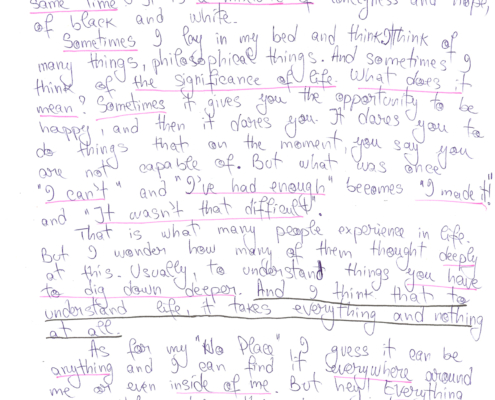 same time. It is a                of loneliness and hope,
of black and white.
Sometimes I lay in my bed and think. I think of
many things, philosophical things. And sometimes I
think of the significance of life. What does it
mean? Sometimes it gives you the opportunity to be
happy, and then it dares you. It dares you to
do things that on the moment, you say you
are not capable of. But what was once
"I can't" and "I've had enough" becomes "I made it!"
and "It wasn't that difficult".
That is what many people experience in life.
But I wonder how many of them thought deeply
at this. Usually, to understand things you have
to dig down deeper. And I think that to
understand life, it takes everything and nothing
at all.
As for my "No Place", I guess it can be
anything and I can find it everywhere around
me or even inside of me. But hey! Everything